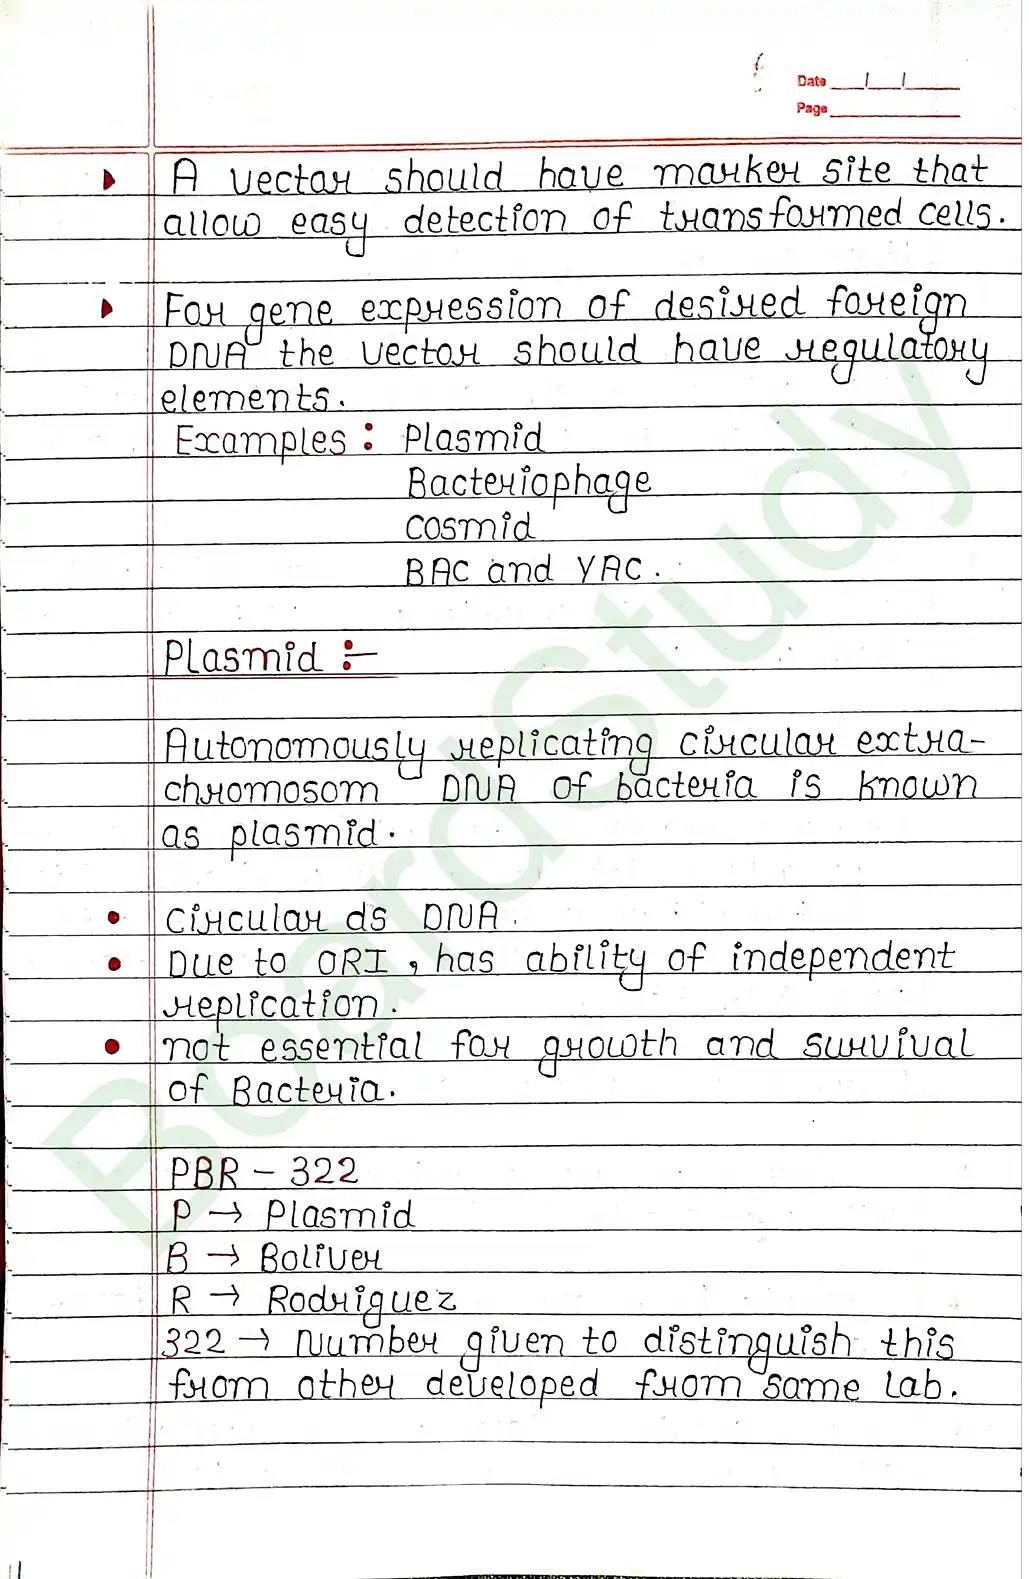 Date __/__/____
Page ________
A vector should have marker site that
allow easy detection of transformed cells.
For gene expression of desired foreign
DNA the vector should have regulatory
elements.
Examples : Plasmid
Bacteriophage
Cosmid
BAC and YAC.
Plasmid :-
Autonomously replicating circular extra-
chromosom DNA of bacteria is known
as plasmid.
• Circular ds DNA.
• Due to ORI, has ability of independent
replication.
• not essential for growth and survival
of Bacteria.
PBR - 322
P → Plasmid
B → Boliver
R → Rodriguez
322 → Number given to distinguish this
from other developed from same lab.
BoardStudy